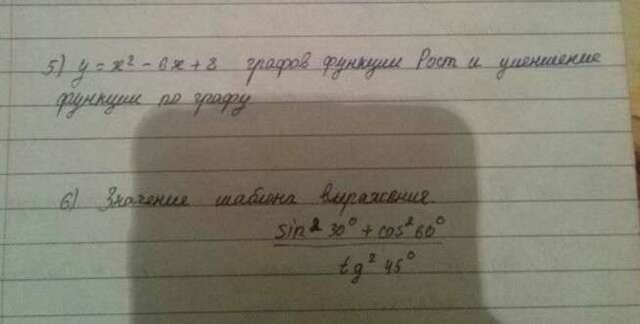 5) y = x² - 6x + 8 графов функции Рост и уменшение
функции по графу
6) Значение шаблона выражения.
sin² 30° + cos² 60°
tg² 45°